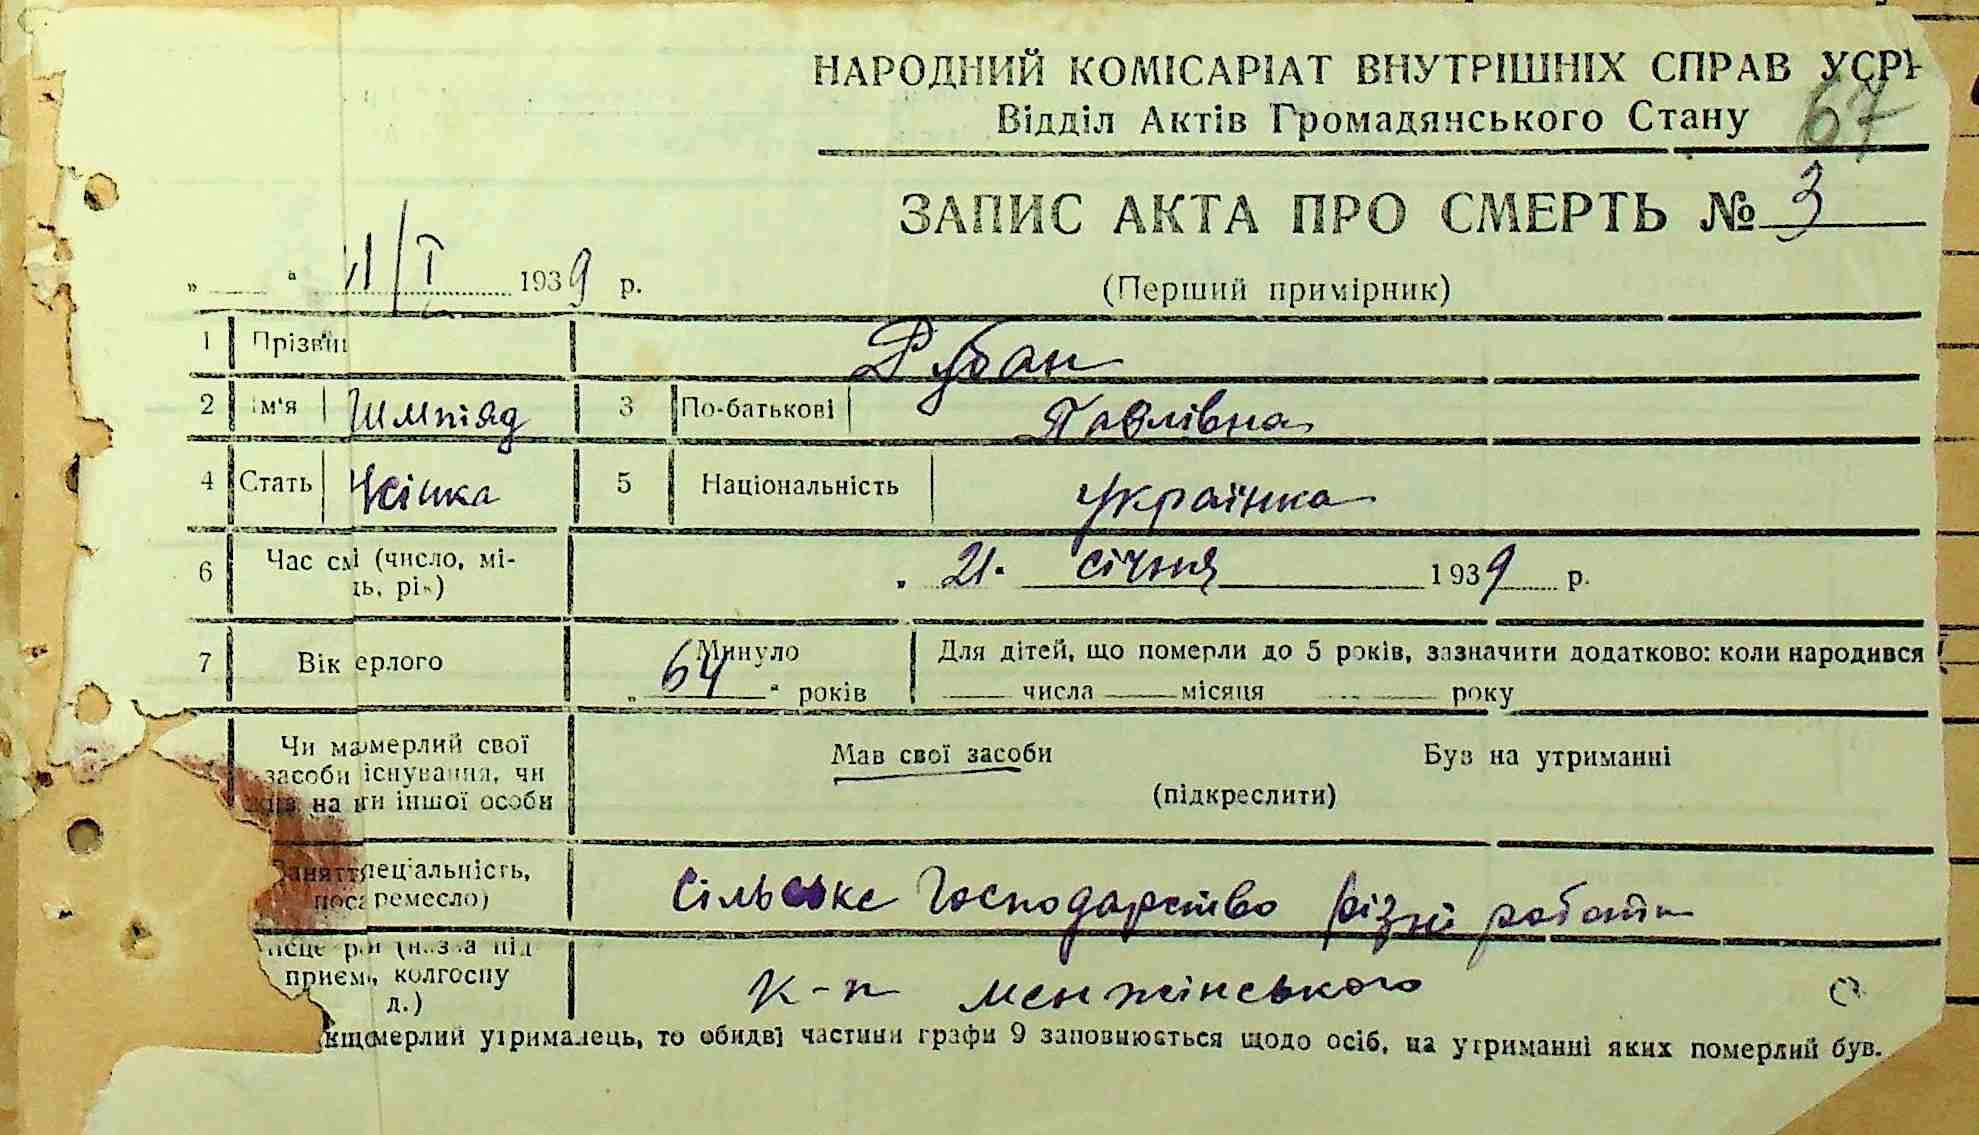 НАРОДНИЙ КОМІСАРІАТ ВНУТРІШНІХ СПРАВ УСРР
67
Відділ Актів Громадянського Стану
ЗАПИС АКТА ПРО СМЕРТЬ № 3
„ “ 1939 р.
(Перший примірник)
1 Прізвищ Рубан
2 Ім'я 3 По-батькові Павлівна
4 Стать Жінка 5 Національність українка
6 Час см (число, мі-
ь, рік) 21. січня 1939 р.
7 Вік ерлого Минуло 64 років Для дітей, що померли до 5 років, зазначити додатково: коли народився
числа місяця року
Чи ма мерлий свої
засоби існування, чи
на ти іншої особи
Мав свої засоби Був на утриманні
(підкреслити)
Занятт пеціальність,
поса ремесло)
Сільське Господарство різні роботи
приєм, колгоспу
д.)
К-п менжінського
кщо мерлий утрималець, то обидві частини графи 9 заповнюється щодо осіб, на утриманні яких померлий був.